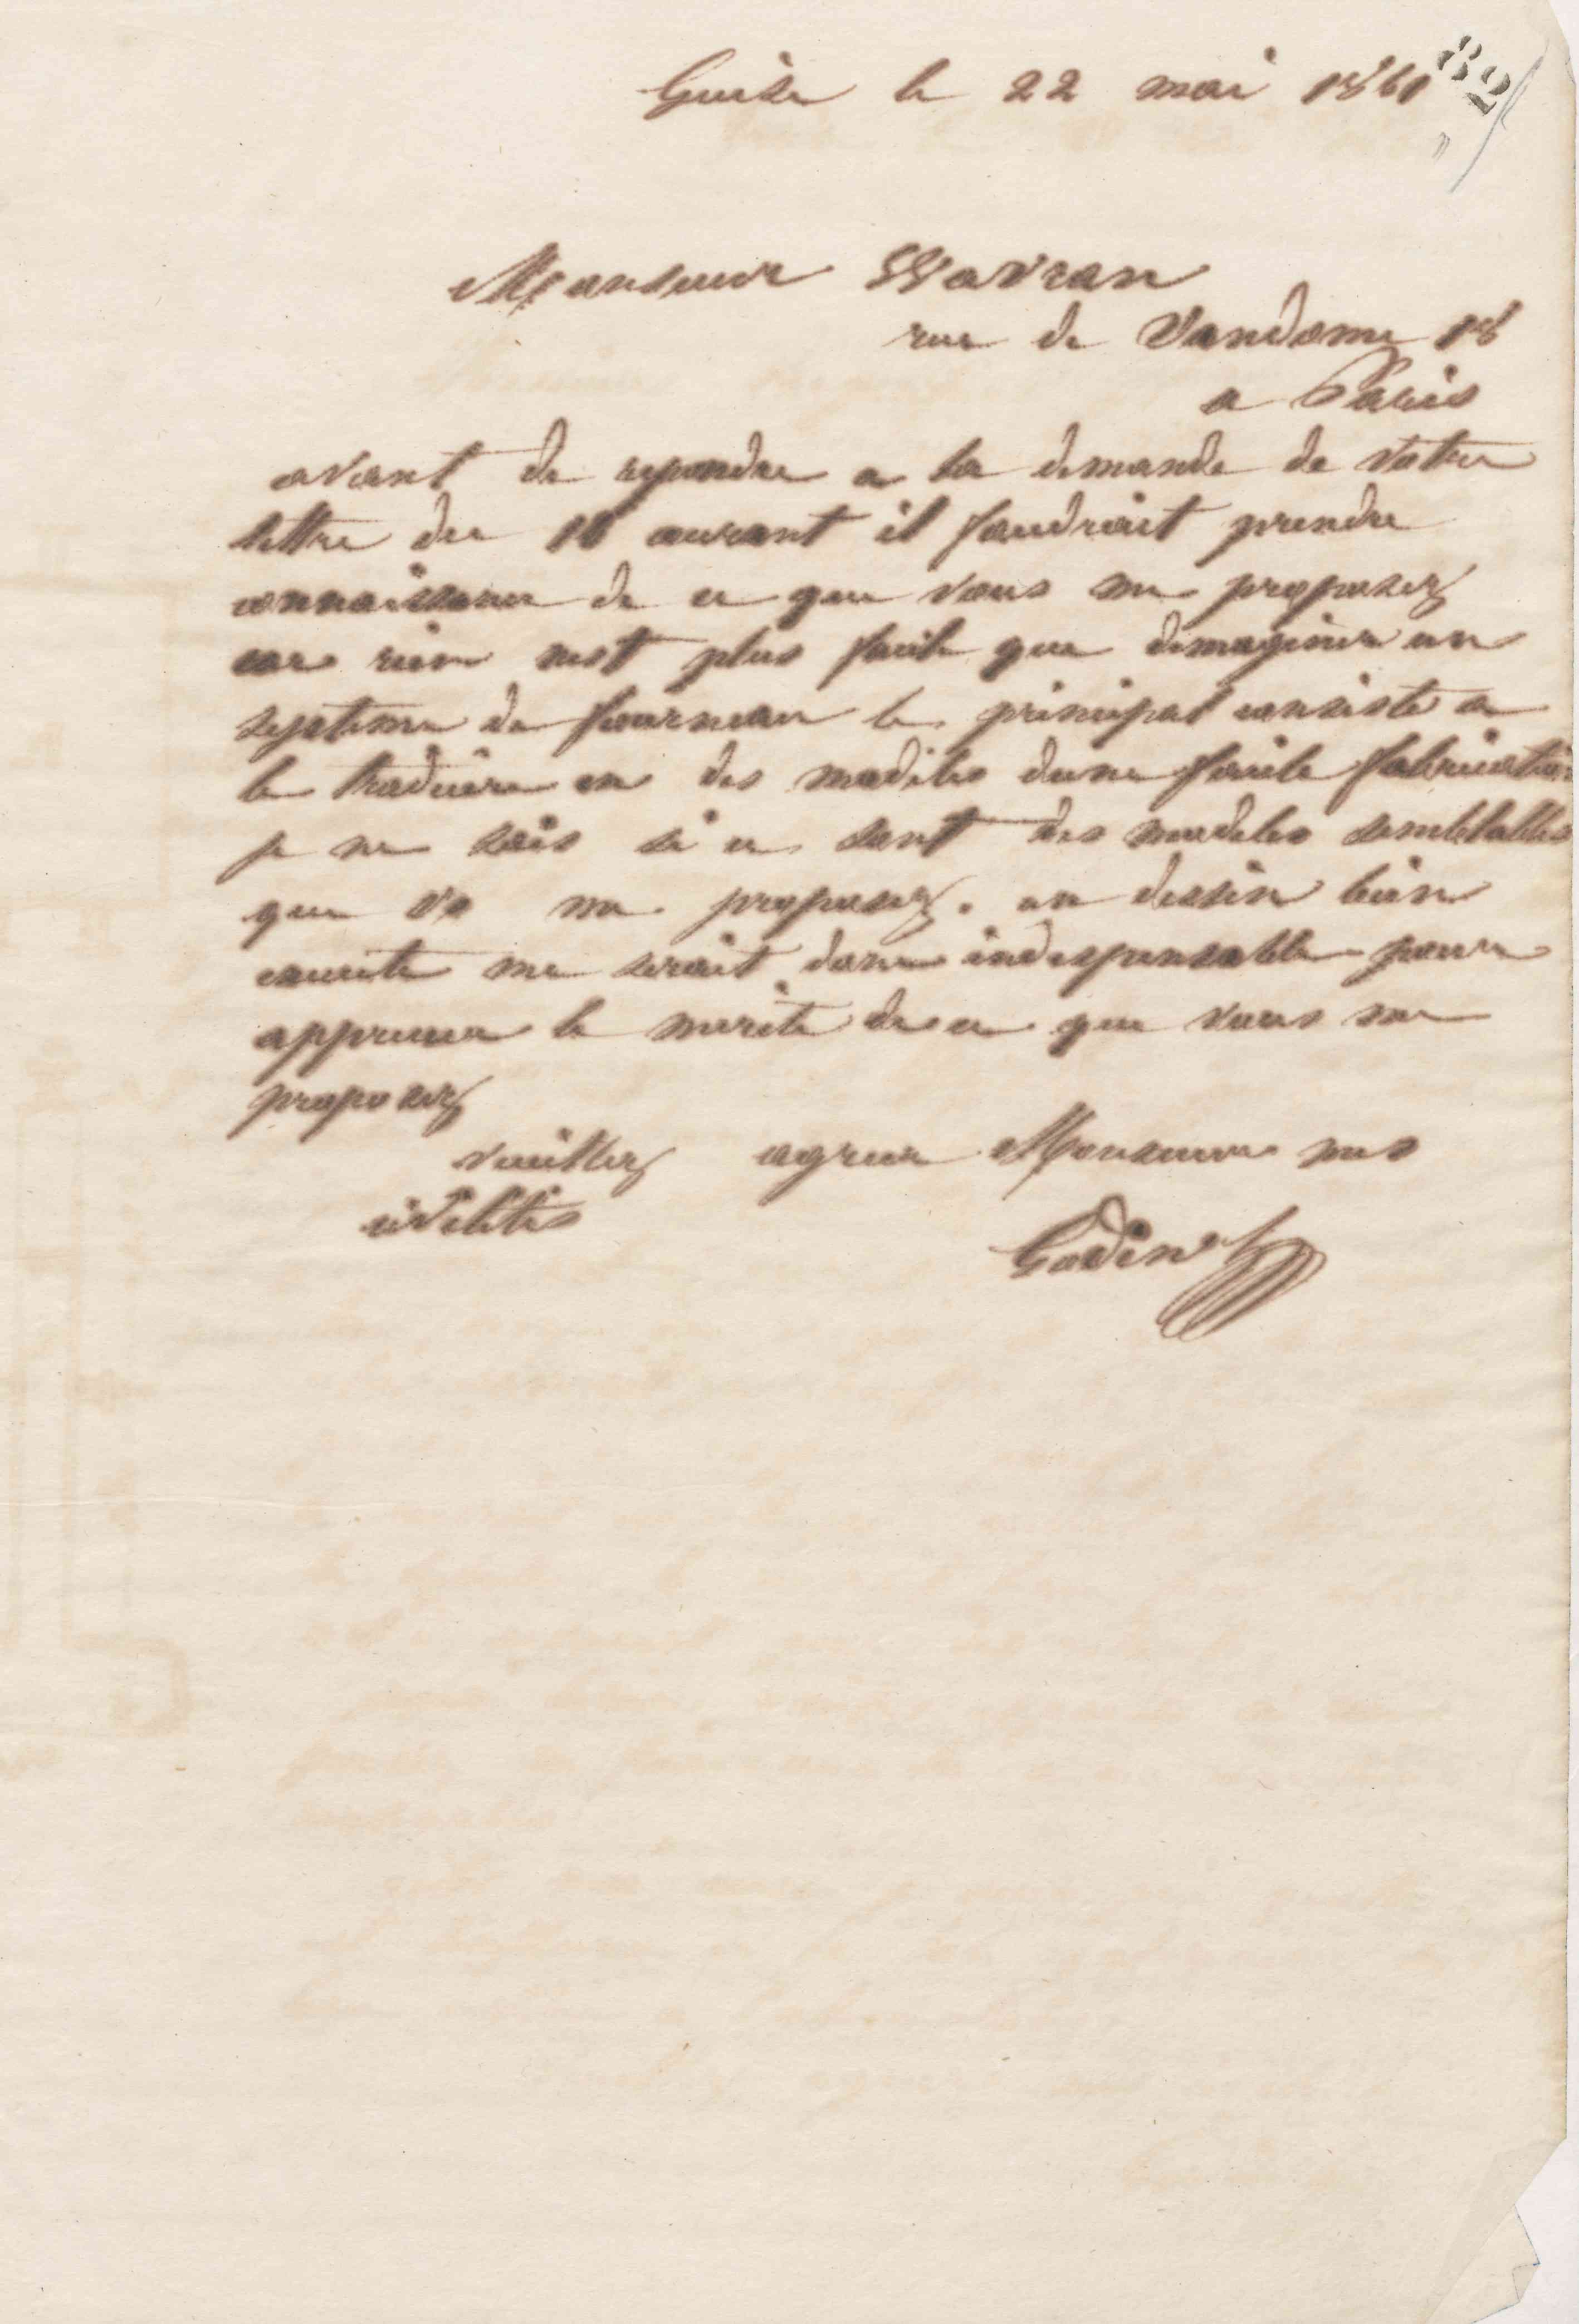 82
Guise le 22 mai 1861
Monsieur Wavran
rue de Vandome 18
a Paris
avant de repondre a la demande de votre
lettre du 16 courant il faudrait prendre
connaissance de ce que vous me proposez
car rien nest plus facile que dimaginer un
systeme de fourneau le principal consiste a
le traduire en des modeles dune facile fabrication
je ne sais si ce sont des modeles semblables
que vs me proposez. un dessin bien
executé me serait donc indispensable pour
apprecier le merite de ce que vous me
proposez
veuillez agreer Monsieur mes
civilites
Godin